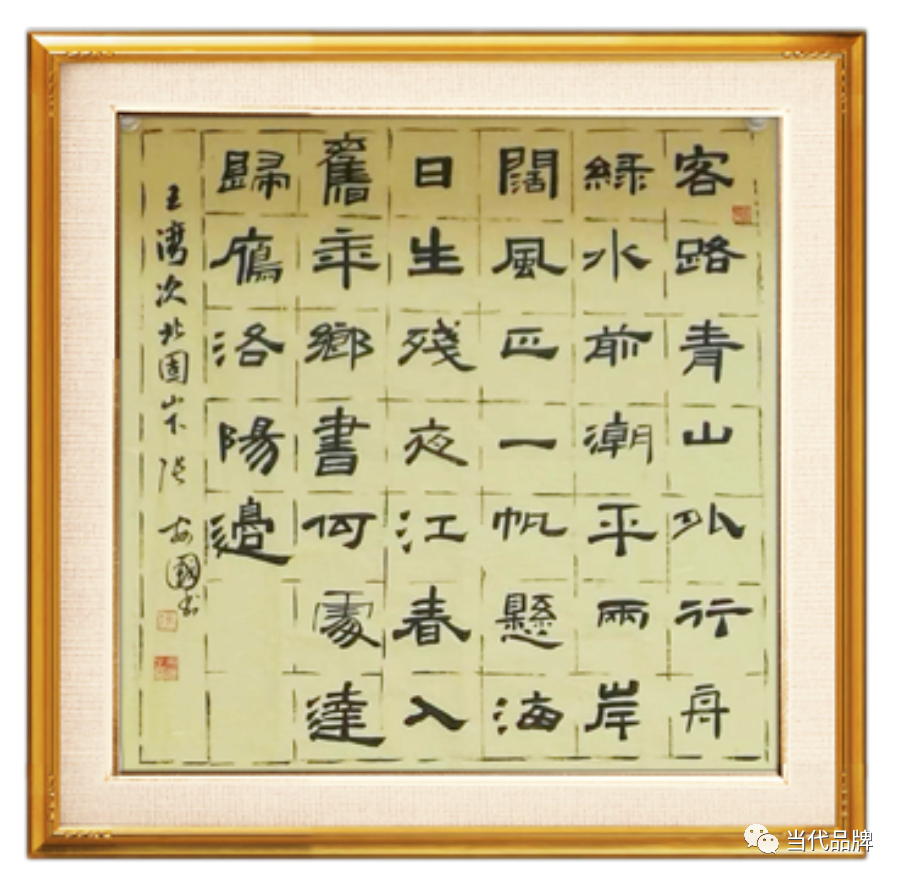 客路青山外行舟
綠水前潮平兩岸
闊風正一帆懸海
日生殘夜江春入
舊年鄉書何處達
歸鴈洛陽邊
王灣次北固山下 张安國书
当代品牌